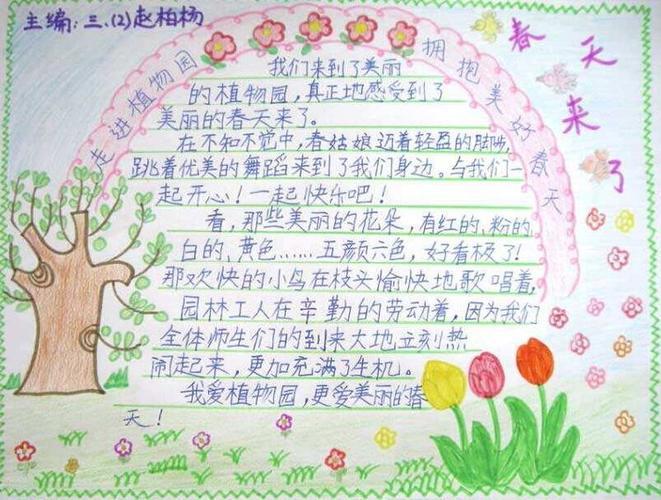 主编：三.(2)赵柏杨
走进植物园
拥抱美好春天
春天来了
我们来到了美丽
的植物园，真正地感受到了
美丽的春天来了。
在不知不觉中，春姑娘迈着轻盈的脚步，
跳着优美的舞蹈来到了我们身边。与我们一
起开心！一起快乐吧！
看，那些美丽的花朵，有红的、粉的
白的、黄色……五颜六色，好看极了！
那欢快的小鸟在枝头愉快地歌唱着，
园林工人在辛勤的劳动着，因为我们
全体师生们的到来大地立刻热
闹起来，更加充满了生机。
我爱植物园，更爱美丽的春
天！